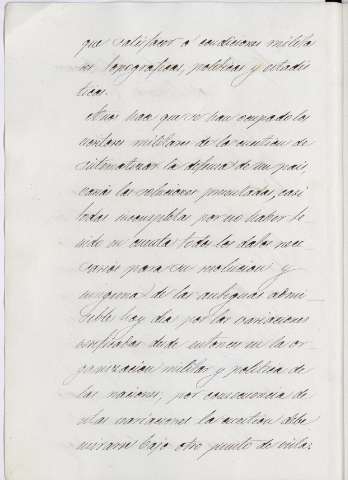 que satisfacer á condiciones milita
res, topograficas, politicas y estadis
ticas.
Años hace que se han ocupado los
escritores militares de la cuestion de
sistematizar la defensa de un pais,
varias las soluciones presentadas, casi
todas incompletas por no haber te
nido en cuenta todos los datos nece
sarios para su resolucion y
ninguna de las antiguas admi
sibles hoy dia por las variaciones
verificadas desde entonces en la or
ganizacion militar y politica de
las naciones; por consecuencia de
estas variaciones la cuestion debe
mirarse bajo otro punto de vista: